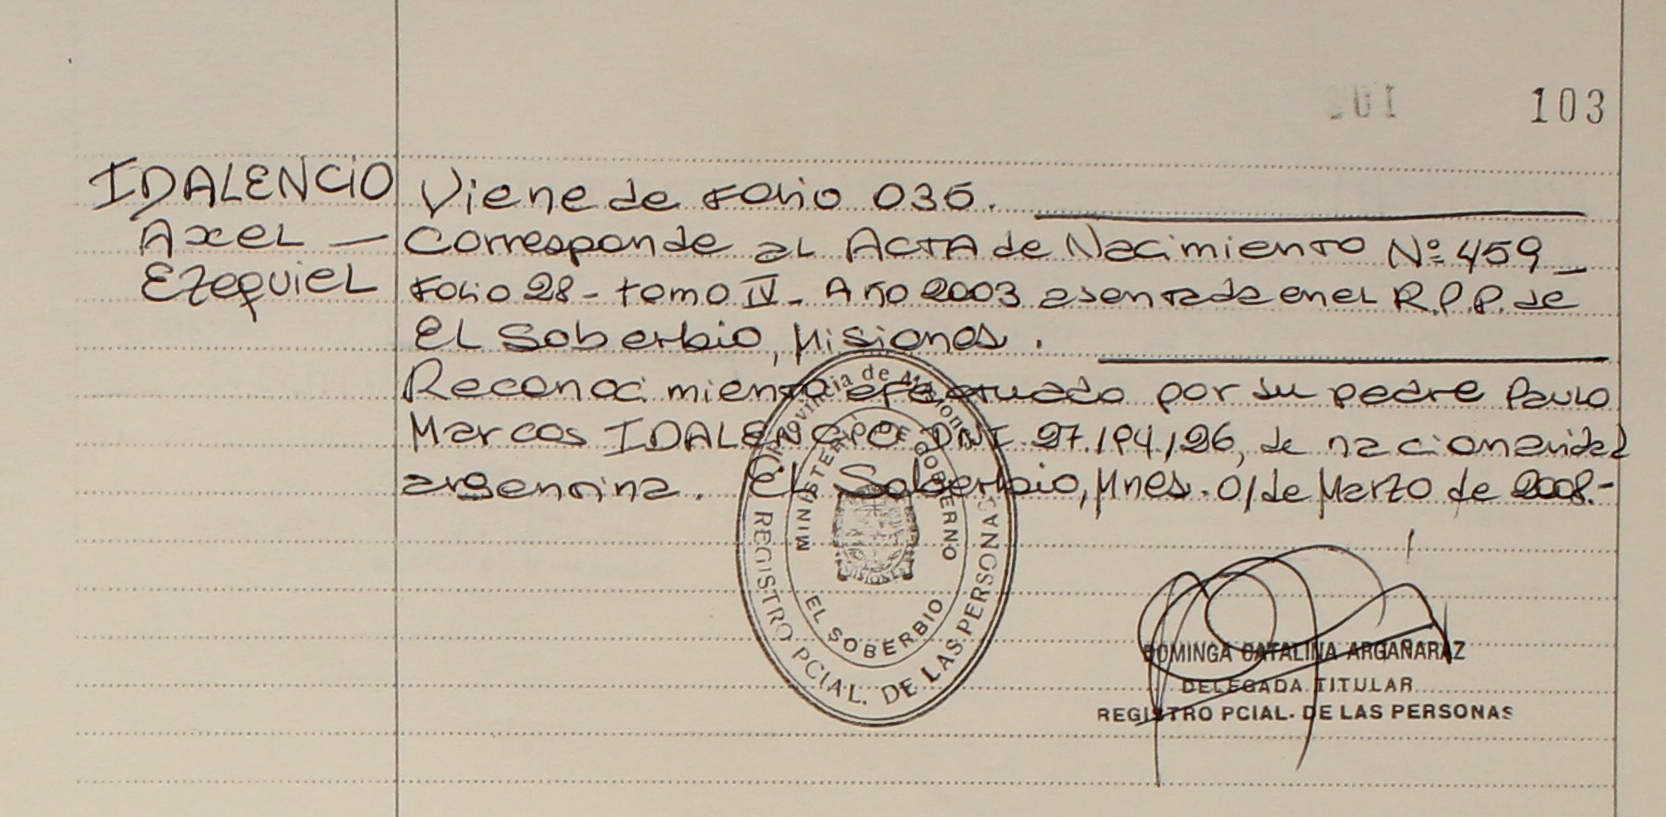 103
IDALENCIO
Axel —
Ezequiel
Viene de Folio 035.
Corresponde al ACTA de Nacimiento Nº 459 _
Folio 28 - tomo IV - Año 2003 asentada en el R.P.P. de
El Soberbio, Misiones.
Reconocimiento efectuado por su padre Paulo
Marcos IDALENCIO DNI 27.194.126, de nacionalidad
argentina. El Soberbio, Mnes. 01 de Marzo de 2008.-
Provincia de Misiones
MINISTERIO DE GOBIERNO
REGISTRO PCIAL. DE LAS PERSONAS
MISIONES
EL SOBERBIO
DOMINGA CATALINA ARGAÑARAZ
DELEGADA TITULAR
REGISTRO PCIAL. DE LAS PERSONAS